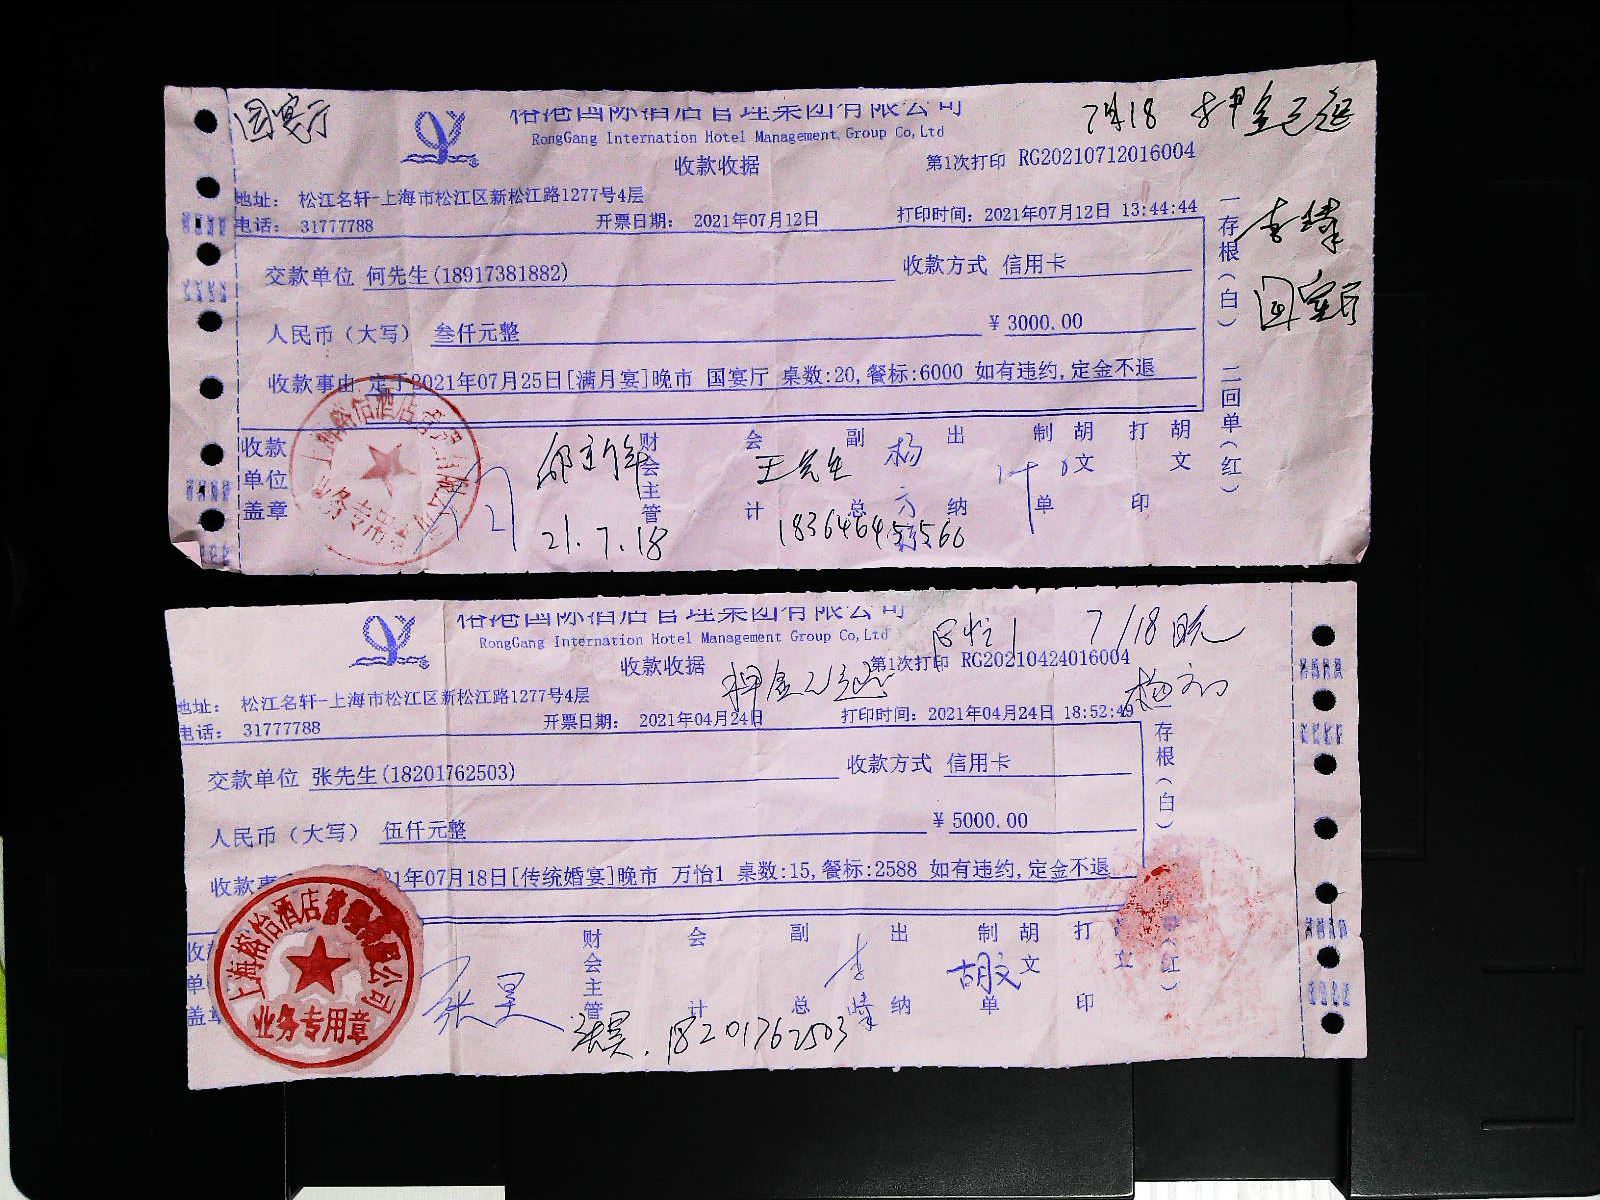 国宴厅
榕港国际酒店管理集团有限公司
7月18 押金已退
RongGang Internation Hotel Management Group Co,Ltd
收款收据
第1次打印 RG20210712016004
地址: 松江名轩-上海市松江区新松江路1277号4层
电话: 31777788 开票日期: 2021年07月12日 打印时间: 2021年07月12日 13:44:44
交款单位 何先生(18917381882) 收款方式 信用卡
人民币(大写) 叁仟元整 ¥ 3000.00
收款事由 定于2021年07月25日[满月宴]晚市 国宴厅 桌数:20,餐标:6000 如有违约,定金不退
一存根(白) 二回单(红)
李
国宴厅
收款单位盖章 财会主管 会计 副总 出纳 制单 胡文 打印 胡文
王先生 杨
21.7.18
业务专用章
榕港国际酒店管理集团有限公司
7/18晚
RongGang Internation Hotel Management Group Co,Ltd
收款收据
第1次打印 RG20210424016004
押金已退
地址: 松江名轩-上海市松江区新松江路1277号4层
电话: 31777788 开票日期: 2021年04月24日 打印时间: 2021年04月24日 18:52:49
交款单位 张先生(18201762503) 收款方式 信用卡
人民币(大写) 伍仟元整 ¥ 5000.00
收款事 21年07月18日[传统婚宴]晚市 万怡1 桌数:15,餐标:2588 如有违约,定金不退
存根(白) 红)
收 单 盖章 财会主管 会计 副总 出纳 制单 胡文 打印 文
张昊 李 胡文
张昊. 18201762503
上海榕怡酒店管理有限公司
业务专用章